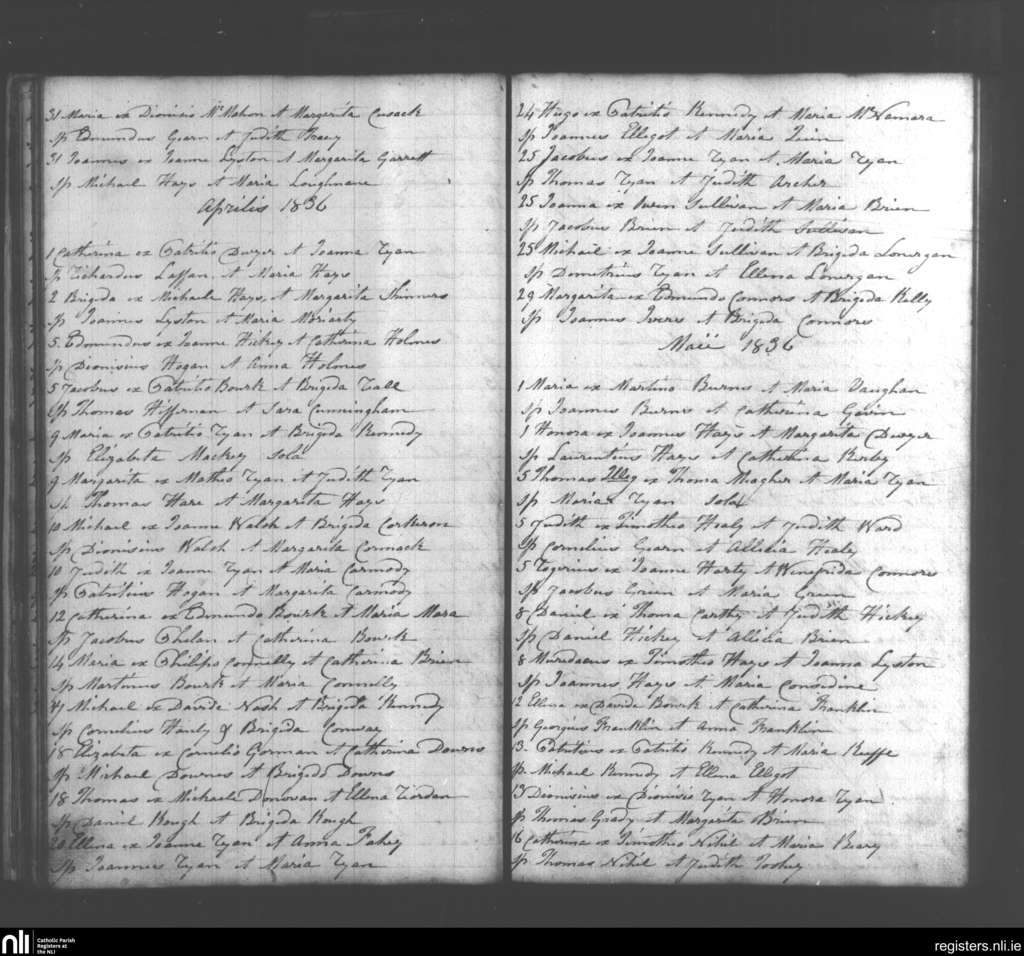 31 Maria ex Dionisio McMahon et Margarita Cusack
Sp Edmundus Gearn et Judith Tracy
31 Joannes ex Joanne Lyston et Margarita Garrett
Sp Michael Hays et Maria Loughnane
Aprilis 1836
1 Catherina ex Patritio Dwyer et Joanna Ryan
Sp Richardus Laffan et Maria Hays
2 Brigida ex Michaele Hays et Margarita Skinners
Sp Joannes Lyston et Maria Moriarty
5. Edmundus ex Joanne Hickey et Catherina Holmes
Sp Dionisius Hogan et Anna Holmes
5 Jacobus ex Patritio Bourk et Brigida Rall
Sp Thomas Hiffernan et Sara Cunningham
9 Maria ex Patritio Ryan et Brigida Kennedy
Sp Elizabeta Mackey sola
9 Margarita ex Matheo Ryan et Judith Ryan
Sp Thomas Hare et Margarita Hays
10 Michael ex Joanne Walsh et Brigida Corkeron
Sp Dionisius Walsh et Margarita Cormack
10 Judith ex Joanne Ryan et Maria Carmody
Sp Patritius Hogan et Margarita Carmody
12 Catherina ex Edmundo Bourk et Maria Mara
Sp Jacobus Phelan et Catherina Bourk
14 Maria ex Philippo Connelly et Catherina Brien
Sp Martinus Bourk et Maria Connelly
17 Michael ex Davide Nash et Brigida Kennedy
Sp Cornelius Hanly & Brigida Conway
18 Elizabeta ex Cornelio Gorman et Catherina Downes
Sp Michael Downes et Brigida Downs
18 Thomas ex Michaele Donovan et Ellena Riordan
Sp Daniel Keough et Brigida Keough
20 Ellena ex Joanne Ryan et Anna Fahey
Sp Joannes Ryan et Maria Ryan
24 Hugo ex Patritio Kennedy et Maria McNamara
Sp Joannes Elligot et Maria Quin
25 Jacobus ex Joanne Ryan et Maria Ryan
Sp Thomas Ryan et Judith Archer
25 Joanna ex Owen Sullivan et Maria Brien
Sp Jacobus Brien et Judith Sullivan
25 Michael ex Joanne Sullivan et Brigida Lonergan
Sp Demetrius Ryan et Ellena Lonergan
29 Margarita ex Edmundo Connors et Brigida Kelly
Sp Joannes Ivers et Brigida Connors
Maii 1836
1 Maria ex Martino Burns et Maria Vaughan
Sp Joannes Burns et Catherina Gavin
1 Honora ex Joannes Hays et Margarita Dwyer
Sp Laurentius Hays et Catherina Kirby
5 Thomas Illeg ex Thoma Meagher et Maria Ryan
Sp Maria Ryan sola
5 Judith ex Timotheo Healy et Judith Ward
Sp Cornelius Gearn et Allicia Healy
5 Rogerius ex Joanne Harty et Winefrida Connors
Sp Jacobus Green et Maria Green
8 Daniel ex Thoma Carthy et Judith Hickey
Sp Daniel Hickey et Allicia Brien
8 Muredacus ex Timotheo Hays et Joanna Lyston
Sp Joannes Hays et Maria Considine
12 Ellena ex Davide Bourk et Catherina Franklin
Sp Georgius Franklin et Anna Franklin
13. Patritius ex Patritio Kennedy et Maria Keeffe
Sp. Michael Kennedy et Ellena Elligot
13 Dionisius ex Dionisio Ryan et Honora Ryan
Sp Thomas Grady et Margarita Brien
16 Catherina ex Timotheo Nihil et Maria Keary
Sp Thomas Nihil et Judith
nli
Catholic Parish
Registers at
the NLI
registers.nli.ie